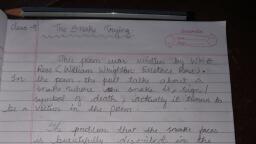 Class-9 The Snake Trying
This poem was written by W.W.E.
Ross (William Wrighton Eustace Ross).
In the poem the poet talks about a
snake where the snake is sign/
symbol of death, actually it shown to
be a victim in the poem.
The problem that the snake faces
is beautifully described in the